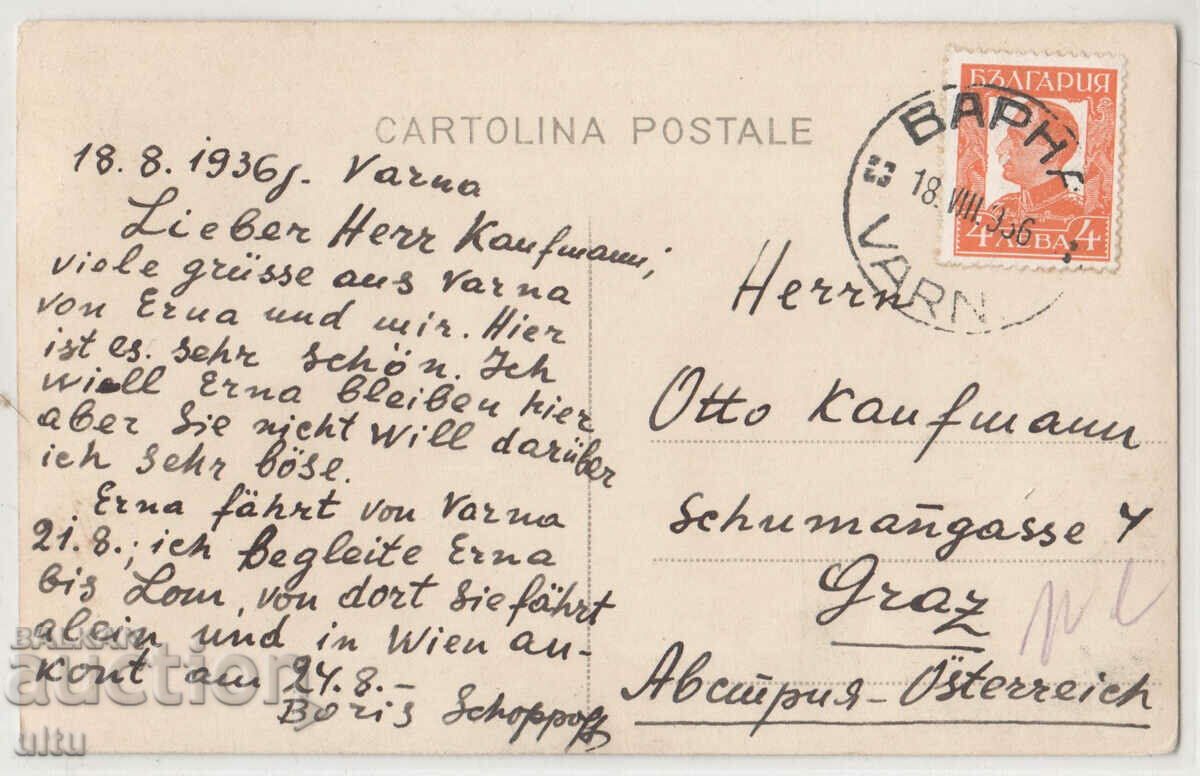 CARTOLINA POSTALE
18.8.1936г. Varna
Lieber Herr Kaufmann,
viele grüsse aus Varna
von Erna und mir. Hier
ist es sehr schön. Ich
will Erna bleiben hier
aber Sie nicht will darüber
ich sehr böse.
Erna fährt von Varna
21.8., ich begleite Erna
bis Lom, von dort Sie fährt
alein und in Wien an-
kont am 24.8.–
Boris Schoppoff
БЪЛГАРИЯ
4 ЛЕВА 4
ВАРН
18.VIII.936
VARN
Herrn
Otto Kaufmann
Schuman̄gasse 4
Graz
Австрия - Österreich
BALKAN
auction
ultu